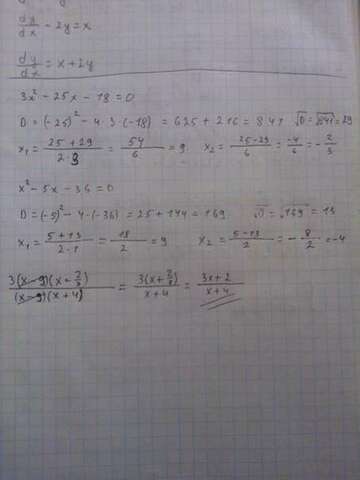 dy/dx - 2y = x
dy/dx = x + 2y
3x² - 25x - 18 = 0
D = (-25)² - 4·3·(-18) = 625 + 216 = 841 √D = √841 = 29
x₁ = (25 + 29)/(2·3) = 54/6 = 9 x₂ = (25-29)/6 = -4/6 = -2/3
x² - 5x - 36 = 0
D = (-5)² - 4·(-36) = 25 + 144 = 169 √D = √169 = 13
x₁ = (5 + 13)/(2·1) = 18/2 = 9 x₂ = (5-13)/2 = -8/2 = -4
3(x-9)(x+2/3)/(x-9)(x+4) = 3(x+2/3)/(x+4) = (3x+2)/(x+4)